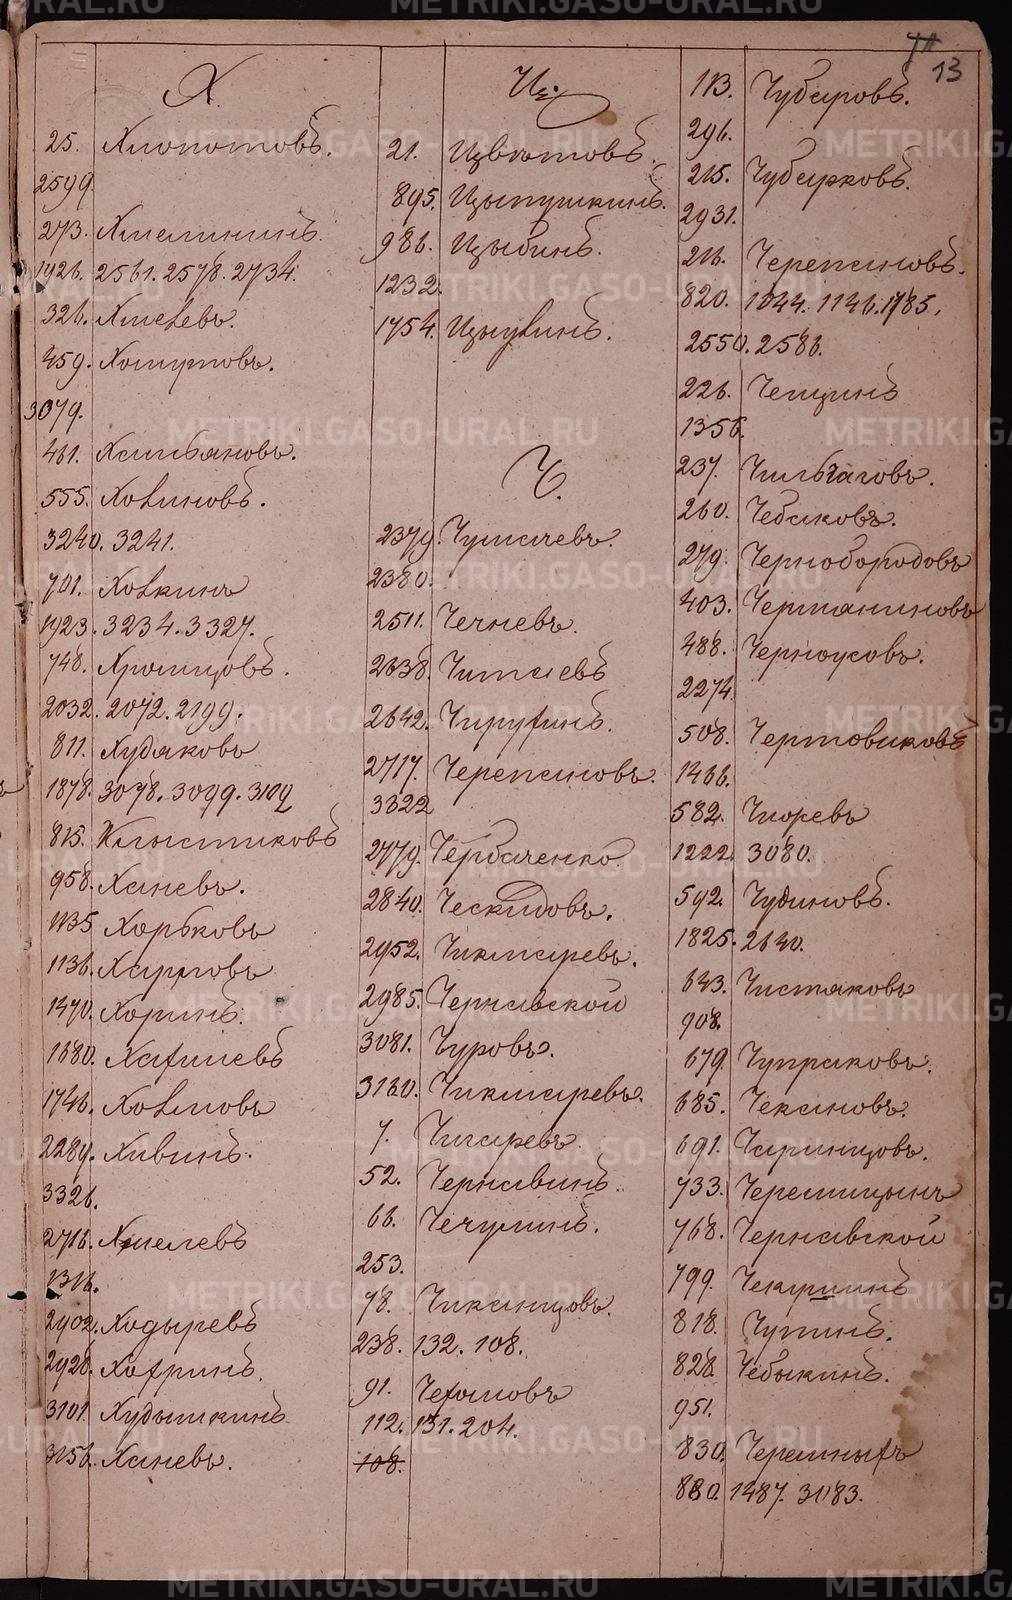 13
Х.
25. Хлопотовъ.
2599
273. Хмелининъ.
1926. 2561. 2578. 2734.
326. Хмелевъ.
459. Хомутовъ.
3079.
461. Хамбяновъ.
555. Ховиновъ.
3240. 3241.
701. Ховкинъ
1923. 3234. 3327.
748. Хромцовъ.
2032. 2072. 2199.
811. Худяковъ
1878. 3078. 3099. 3102
815. Хлыстиковъ
958. Ханевъ.
1135 Хорьковъ
1136. Харловъ
1470. Хоринъ.
1680.
1746. Холмовъ
2289. Хивинъ.
3326.
2716. Хмелевъ
1316.
2902. Ходыревъ
2928. Хохринъ.
3101. Худышкинъ
3156. Ханевъ.
Ц.
21. Цвѣтовъ.
895. Цыпушкинъ.
986. Цыбинъ.
1232.
1754.
Ч.
2379. Чумачевъ.
2380.
2511. Чечневъ.
2638. Читаевъ
2642. Чирухинъ.
2717. Черепановъ.
3322
2779. Чербаченко.
2840. Ческидовъ.
2952. Чикмаревъ.
2985. Чернавской
3081. Чуровъ.
3160. Чикмаревъ.
7. Чигаревъ.
52. Чернавинъ.
66. Чечулинъ.
253.
78. Чиканцовъ.
238. 132. 108.
91. Чехомовъ
112. 131. 204.
108.
113. Чубаровъ.
296.
215. Чубарковъ.
2931.
216. Черепановъ.
820. 1044. 1146. 1785.
2550. 2586.
226. Чепцинъ
1356.
237. Чильчаговъ.
260. Чебаковъ.
279. Чернобородовъ
403. Черманиновъ
488. Черноусовъ.
2274.
508. Чертовиковъ
1466.
582. Чиоревъ
1222. 3080.
592. Чудиновъ.
1825. 2640.
643. Чистяковъ
908.
679. Чупраковъ.
685. Чекановъ.
691. Чаринцовъ.
733. Черемицынъ
768. Чернавской
799. Чекушинъ
818. Чупинъ.
828. Чебыкинъ.
951.
830. Черемныхъ
880. 1487. 3083.
METRIKI.GASO-URAL.RU